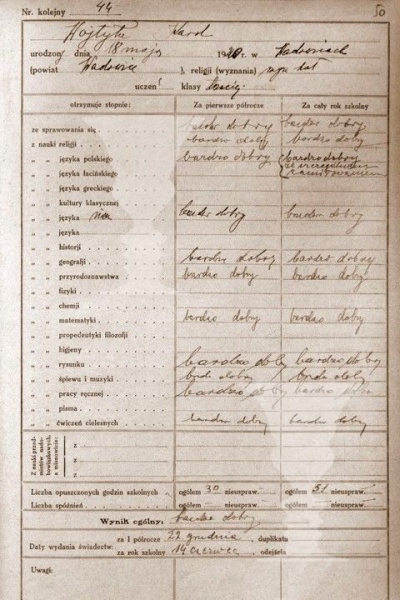 Nr. kolejny 44 50
Wojtyła Karol
urodzony dnia 18 maja 1920 r. w Wadowicach
(powiat Wadowice ), religii (wyznania) rzym kat
uczeń klasy trzeciej
otrzymuje stopnie: Za pierwsze półrocze Za cały rok szkolny
ze sprawowania się bardzo dobry bardzo dobry
z nauki religii bardzo dobry bardzo dobry
„ „ języka polskiego bardzo dobry bardzo dobry
ze szczególnem zamiłowaniem
„ „ języka łacińskiego
„ „ języka greckiego
„ „ kultury klasycznej
„ „ języka niem bardzo dobry bardzo dobry
„ „ języka
„ „ historji
„ „ geografji bardzo dobry bardzo dobry
„ „ przyrodoznawstwa bardzo dobry bardzo dobry
„ „ fizyki
„ „ chemji
„ „ matematyki bardzo dobry bardzo dobry
„ „ propedeutyki filozofji
„ „ higjeny
„ „ rysunku bardzo dobry bardzo dobry
„ „ śpiewu i muzyki bardzo dobry bardzo dobry
„ „ pracy ręcznej bardzo dobry bardzo dobry
„ „ pisma
„ „ ćwiczeń cielesnych bardzo dobry bardzo dobry
Z nauki przedmiotów nadobowiązkowych a mianowicie:
z
z
z
Liczba opuszczonych godzin szkolnych ogółem 30 nieuspraw. ogółem 51 nieuspraw.
Liczba spóźnień ogółem nieuspraw. ogółem nieuspraw.
Wynik ogólny: bardzo dobry
Daty wydania świadectw: za I półrocze 22 grudnia , duplikatu
za rok szkolny 14 czerwca , odejścia
Uwagi: